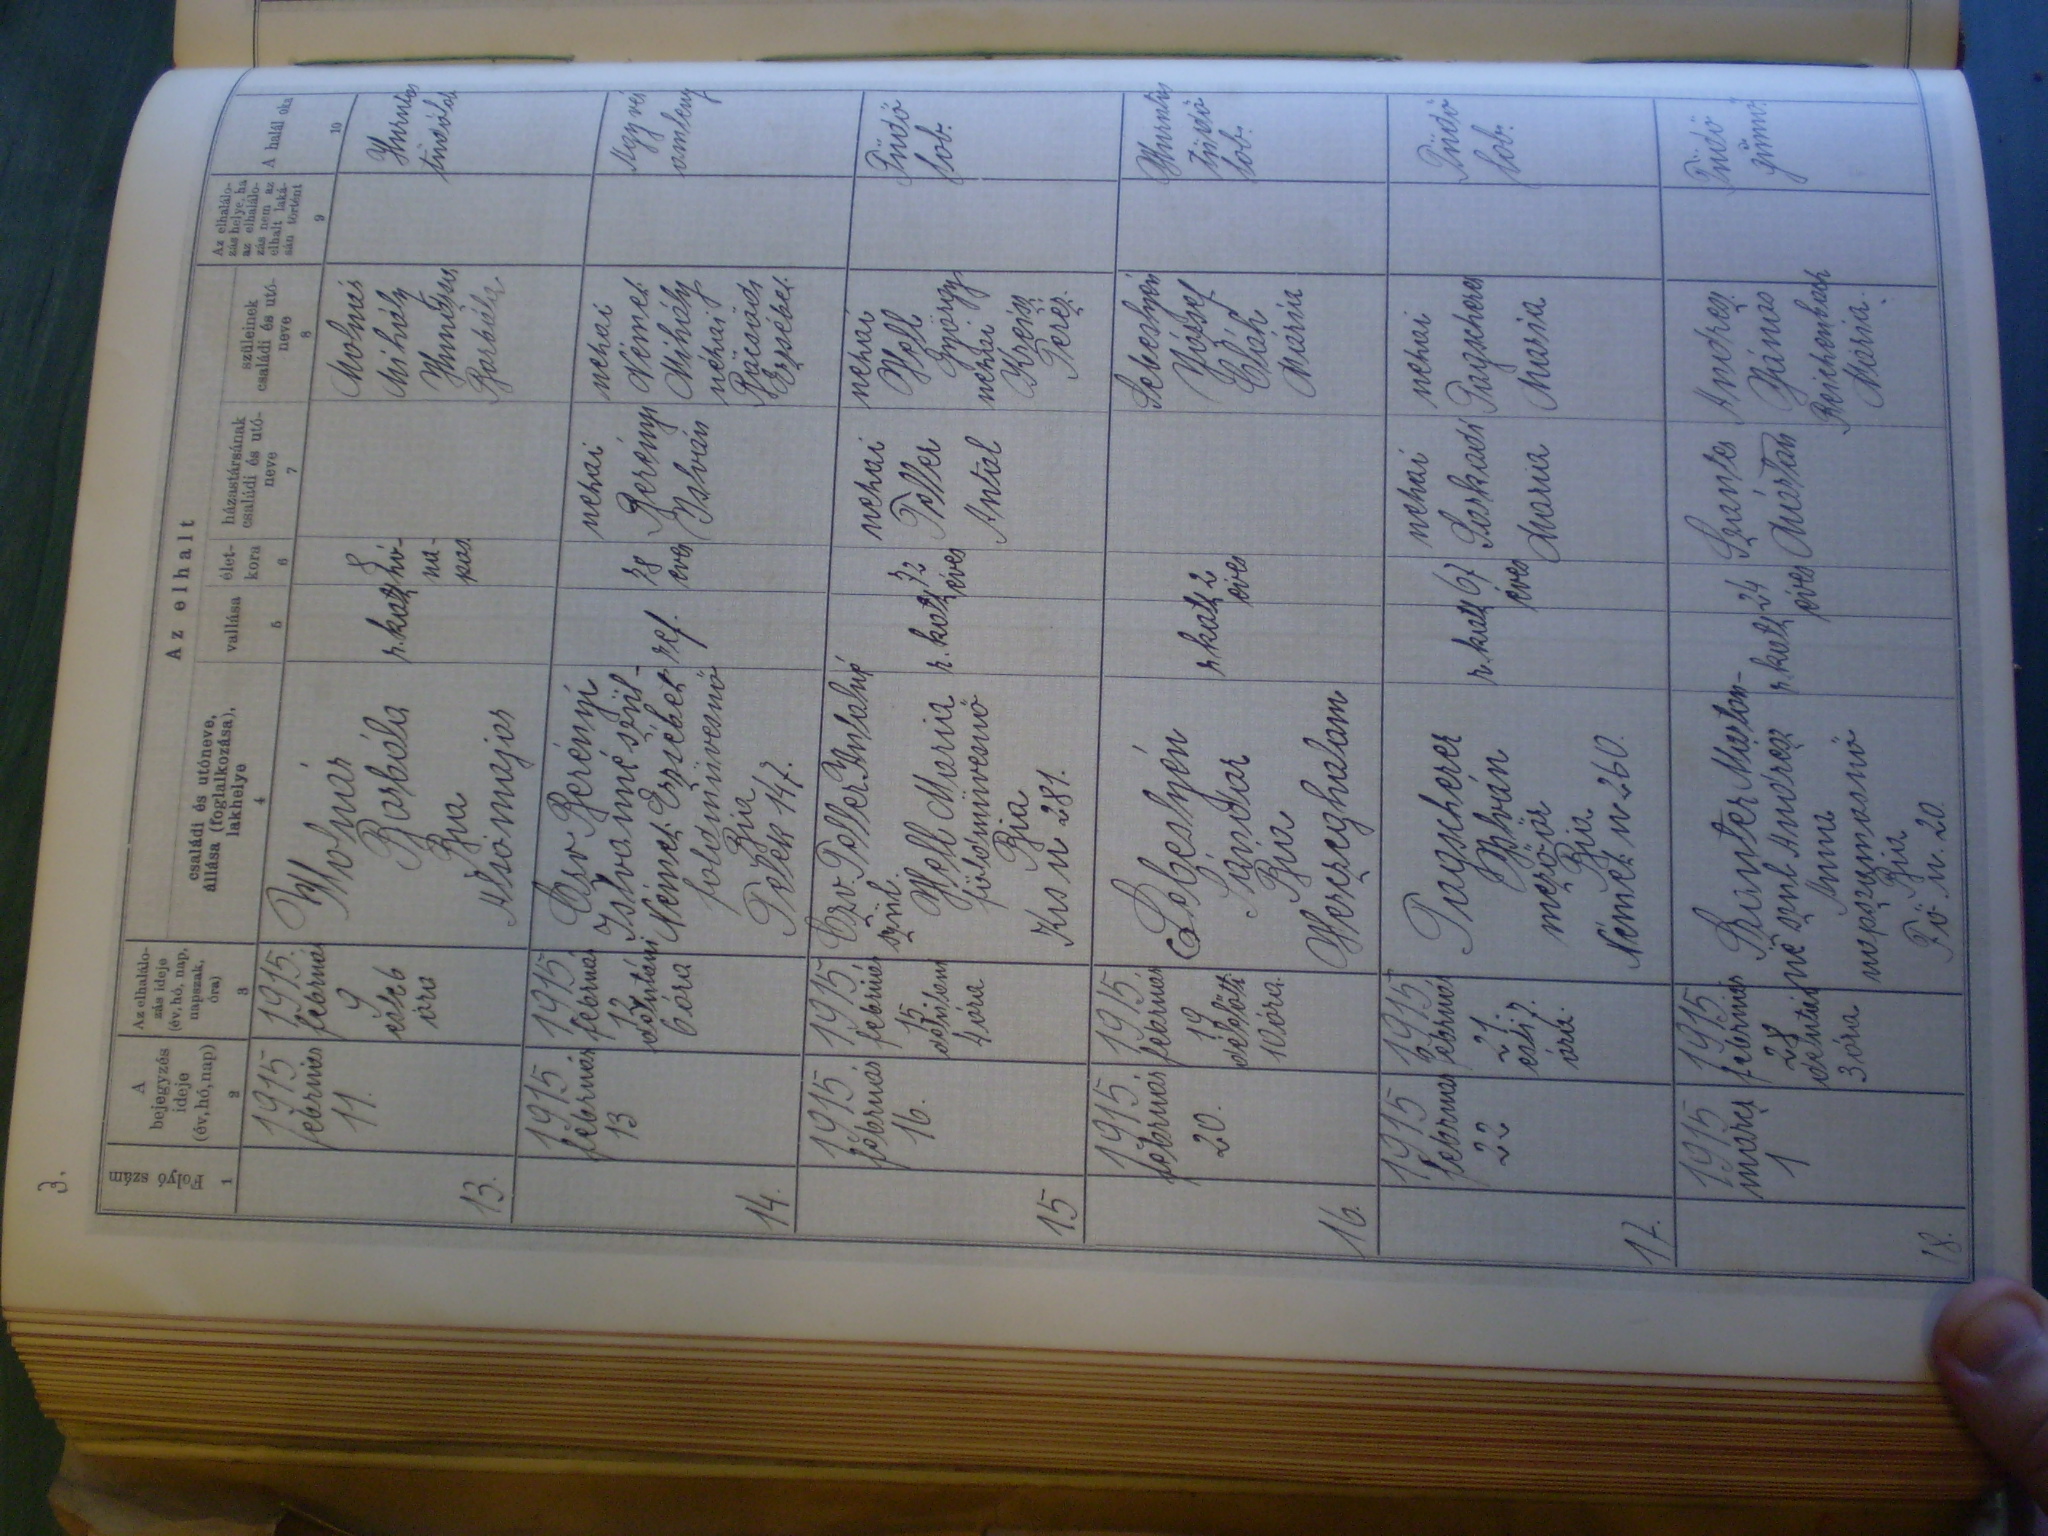 3.
Az elhalt
Folyó szám
A bejegyzés ideje (év, hó, nap)
Az elhalálo-
zás ideje
(év, hó, nap,
napszak,
óra)
családi és utóneve,
állása (foglalkozása),
lakhelye
vallása
élet-
kora
házastársának
családi és utó-
neve
szüleinek
családi és utó-
neve
Az elhalálo-
zás helye, ha
az elhalálo-
zás nem az
elhalt laká-
sán történt
A halál oka
1
2
3
4
5
6
7
8
9
10
13.
1915
február
11.
1915.
február
9
este 6
óra
Molnár
Borbála
Bia
r. kath
8
hó-
na-
pos
Molnár
Mihály
Borbála
Hurutos
14.
1915
február
13
1915.
február
12
délutáni
6 óra
Özv Berényi
Istvanné szül-
Német Erzsébet
földmüvesnö
Bia
Telek 147.
ref.
78
éves
nehai
Berényi
István
nehai
Német
Mihály
nehaj
Erzsébet
Agyvéi
15
1915
február
16.
1915
február
15
délelem
4 óra
Özv. Poller Antalné
szül.
Hell Maria
földmüvesnö
Bia
Kis u 281.
r. kath
72
éves
nehai
Poller
Antal
nehai
Hell
György
nehai
Terez.
Tüdö
lob.
16.
1915
február
20.
1915
február
19
délelött
10 óra.
Sebestyén
Sándor
Bia
Herczeghalom
r. kath
2
éves
Sebestyén
József
Mária
Hurutos
tüdö
lob.
17.
1915
február
22
1915
február
21.
este 7.
óra.
István
Bia
Német u 260.
r. kath
67
éves
nehai
Sarkadi
Maria
nehai
Maria
Tüdö
lob.
18.
1915
marcz
1
1915
február
28
délutáni
3 óra
né szül Andrész
Anna
napszamosnö
Bia
Fö u. 20.
r. kath
24
éves
Márton
Andrész
János
Reichenbach
Maria.
Tüdö